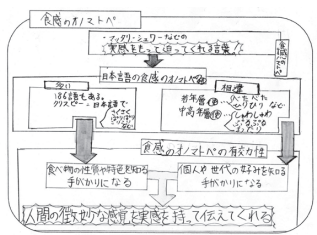 食感のオノマトペ
・フッタリ・シュワーなどの
実感をもって迫ってくれる言葉
食感のオノマトペ
日本語の食感のオノマトペ
多い
相違
186語もある。
クリスピー=日本語で
さくさく
ぱりぱり
など
若年層
ぺたぺた
もりもり など
中高年層
しゅわしゅわ
ぷるぷる
食感のオノマトペの有効性
食べ物の性質や特色を知る
手がかりになる
個人や世代の好みを知る
手がかりになる
人間の微妙な感覚を実感を持って伝えてくれる